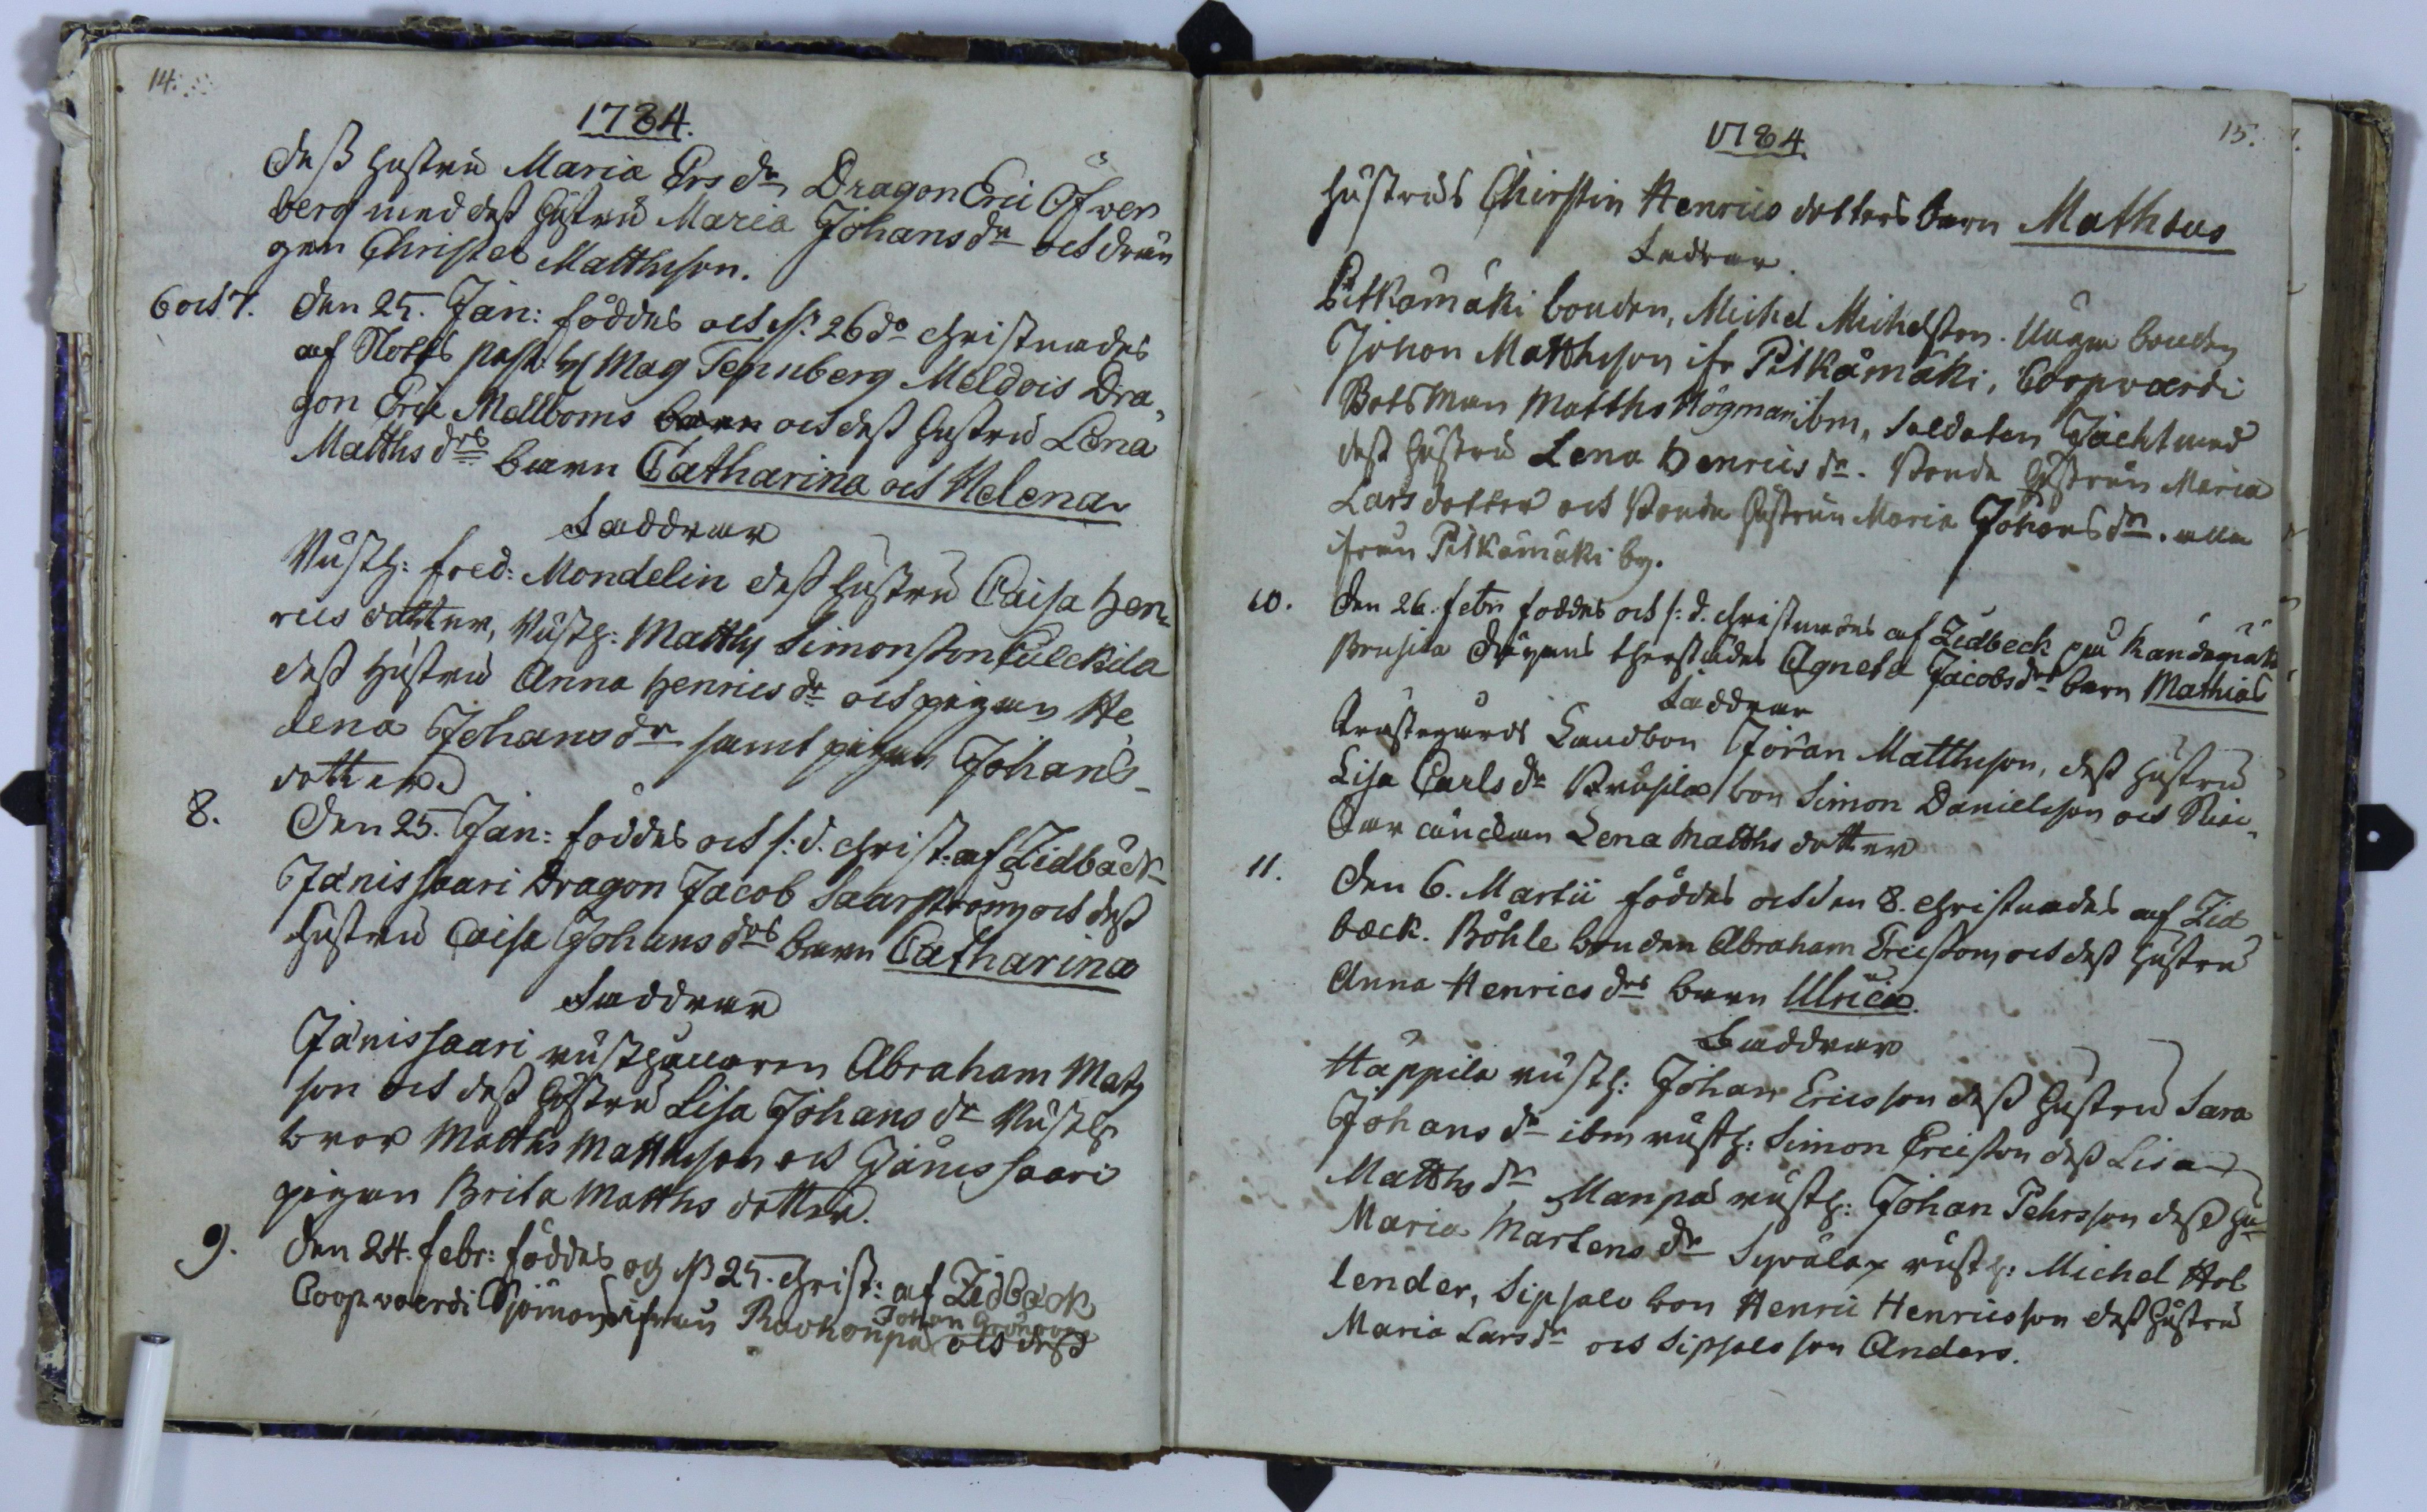 14.
1784.
dess hustru Maria Ers dr Dragon Eric Öfver
berg med dess hustru Maria Johans dr och drän
gen Christer Matthsson.
6 och 7. den 25. Jan: föddes och 26 do christnades
af Slotts past: Mag Tennberg Meldois Dra,
gon Eric Mellboms barn och dess hustru Lena
Matths drs barn Catharina och Helena
Faddrar
Rusth: Fred: Mondelin dess hustru Caisa Hen,
rics dotter, Rusth: Matths Simonsson Culckila
dess hustru Anna Henrics dr och pigan He,
lena Johans dr samt pigan Johans
dotter
8. Den 25. Jan: föddes och s: d. christ: af Zidbäck
Jänissaari Dragon Jacob Saarström och dess
hustru Caisa Johans drs barn Catharina
Faddrar
Jänissaari rusthållaren Abraham Mats
son och dess hustru Lisa Johans dr Rusth
bror Matths Matthsson och Jänissaari
pigan Brita Matths dotter.
9. den 24. Febr: föddes och 25. christ: af Zidbäck
Johan Grönberg
Coopvaerdi Sjöman ifrån och dess
15.
1784
hustrus Chirstin Henrics dotters barn Matheus
Fadrar.
Pitkämäki bonden, Michel Michelsson. Unga bonden
Johan Matthsson ifr Pitkämäki, Coopvaerdi
Botsman Matths Högman ibm, Soldaten Jacht med
dess hustru Lena Henrics dr. Bonde hustrun Maria
Lars dotter och Bonde hustrun Maria Johans dr. alla
ifrån Pitkämäki by.
10. Den 26. Febr föddes och s: d. christnades af Zidbeck på
Brusila Agneta Jacobs drs barn Mathias
Faddrar
Landbon Jöran Matthsson, dess hustru
Lisa Carls dr Brusila bon Simon Danielsson och
Lena Matths dotter
11. Den 6. Martii föddes och den 8. christnades af Zid
bäck. Böhle bonden Abraham Ericsson och dess hustru
Anna Henrics drs barn Ulrica.
Faddrar
Häppilä rusth: Johan Ericsson dess hustru Sara
Johans dr ibm rusth: Simon Ericsson dess Lisa
Matths dr Manpä rusth: Johan Pehrsson dess hu
Maria Mårtens dr Syvälax rusth: Michel Hol
lender, Sipsalo bon Henric Henricsson dess hustru
Maria Lars dr och Sipsalo son Anders.